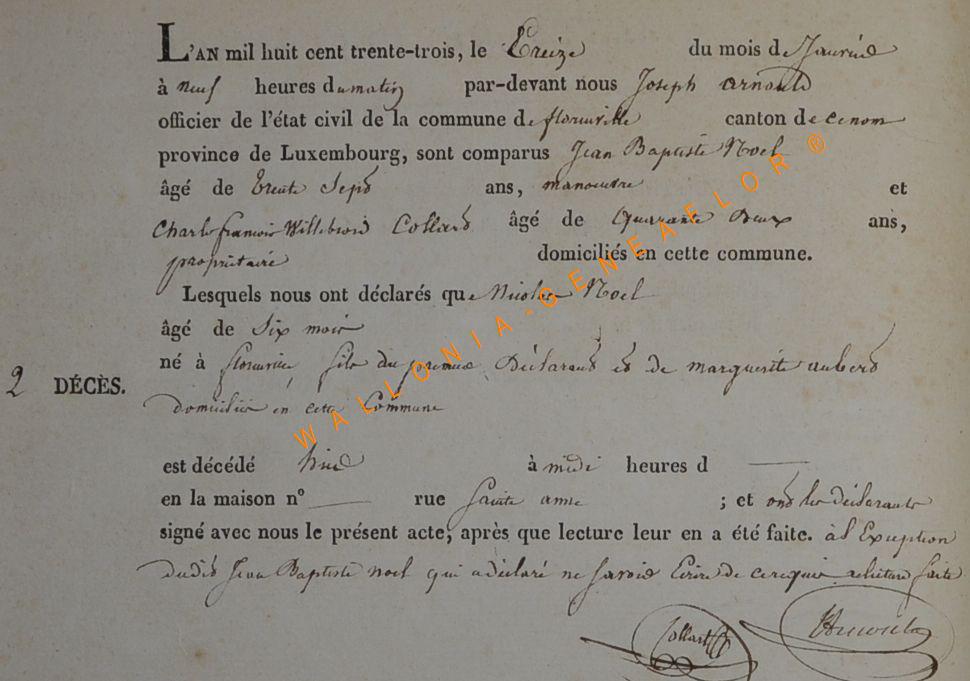 L'AN mil huit cent trente-trois, le Treize du mois de Janvier
à neuf heures du matin par-devant nous Joseph arnould
officier de l'état civil de la commune de florenville canton de
province de Luxembourg, sont comparus Jean Baptiste Noel
âgé de trente Sept ans, manoeuvre et
Charles françois Willebrord Collard âgé de Quarante Deux ans,
propriétaire domiciliés en cette commune.
Lesquels nous ont déclarés que Nicolas Noel
âgé de Six mois
né à florenville fils du premier Déclarant et de marguerite aubert
2 DÉCÈS.
domiciliés en cette Commune
est décédé hier à midi heures d
en la maison n° rue Sainte anne ; et ont les déclarants
signé avec nous le présent acte, après que lecture leur en a été faite. à l'Exception
dudit Jean Baptiste noel qui a déclaré ne Savoir Ecrire de ce requis lecture faite
Collart
WALLONIA-GENEAFLOR®